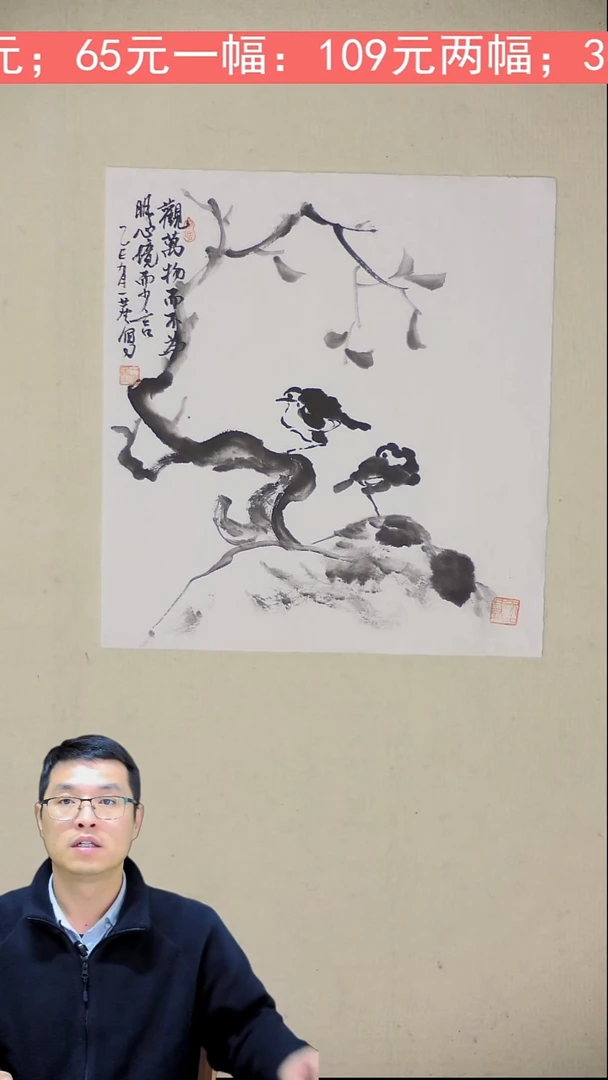 元；65元一幅：109元两幅；3
觀萬物而不为
明心境而少言
乙巳九月一葉寫